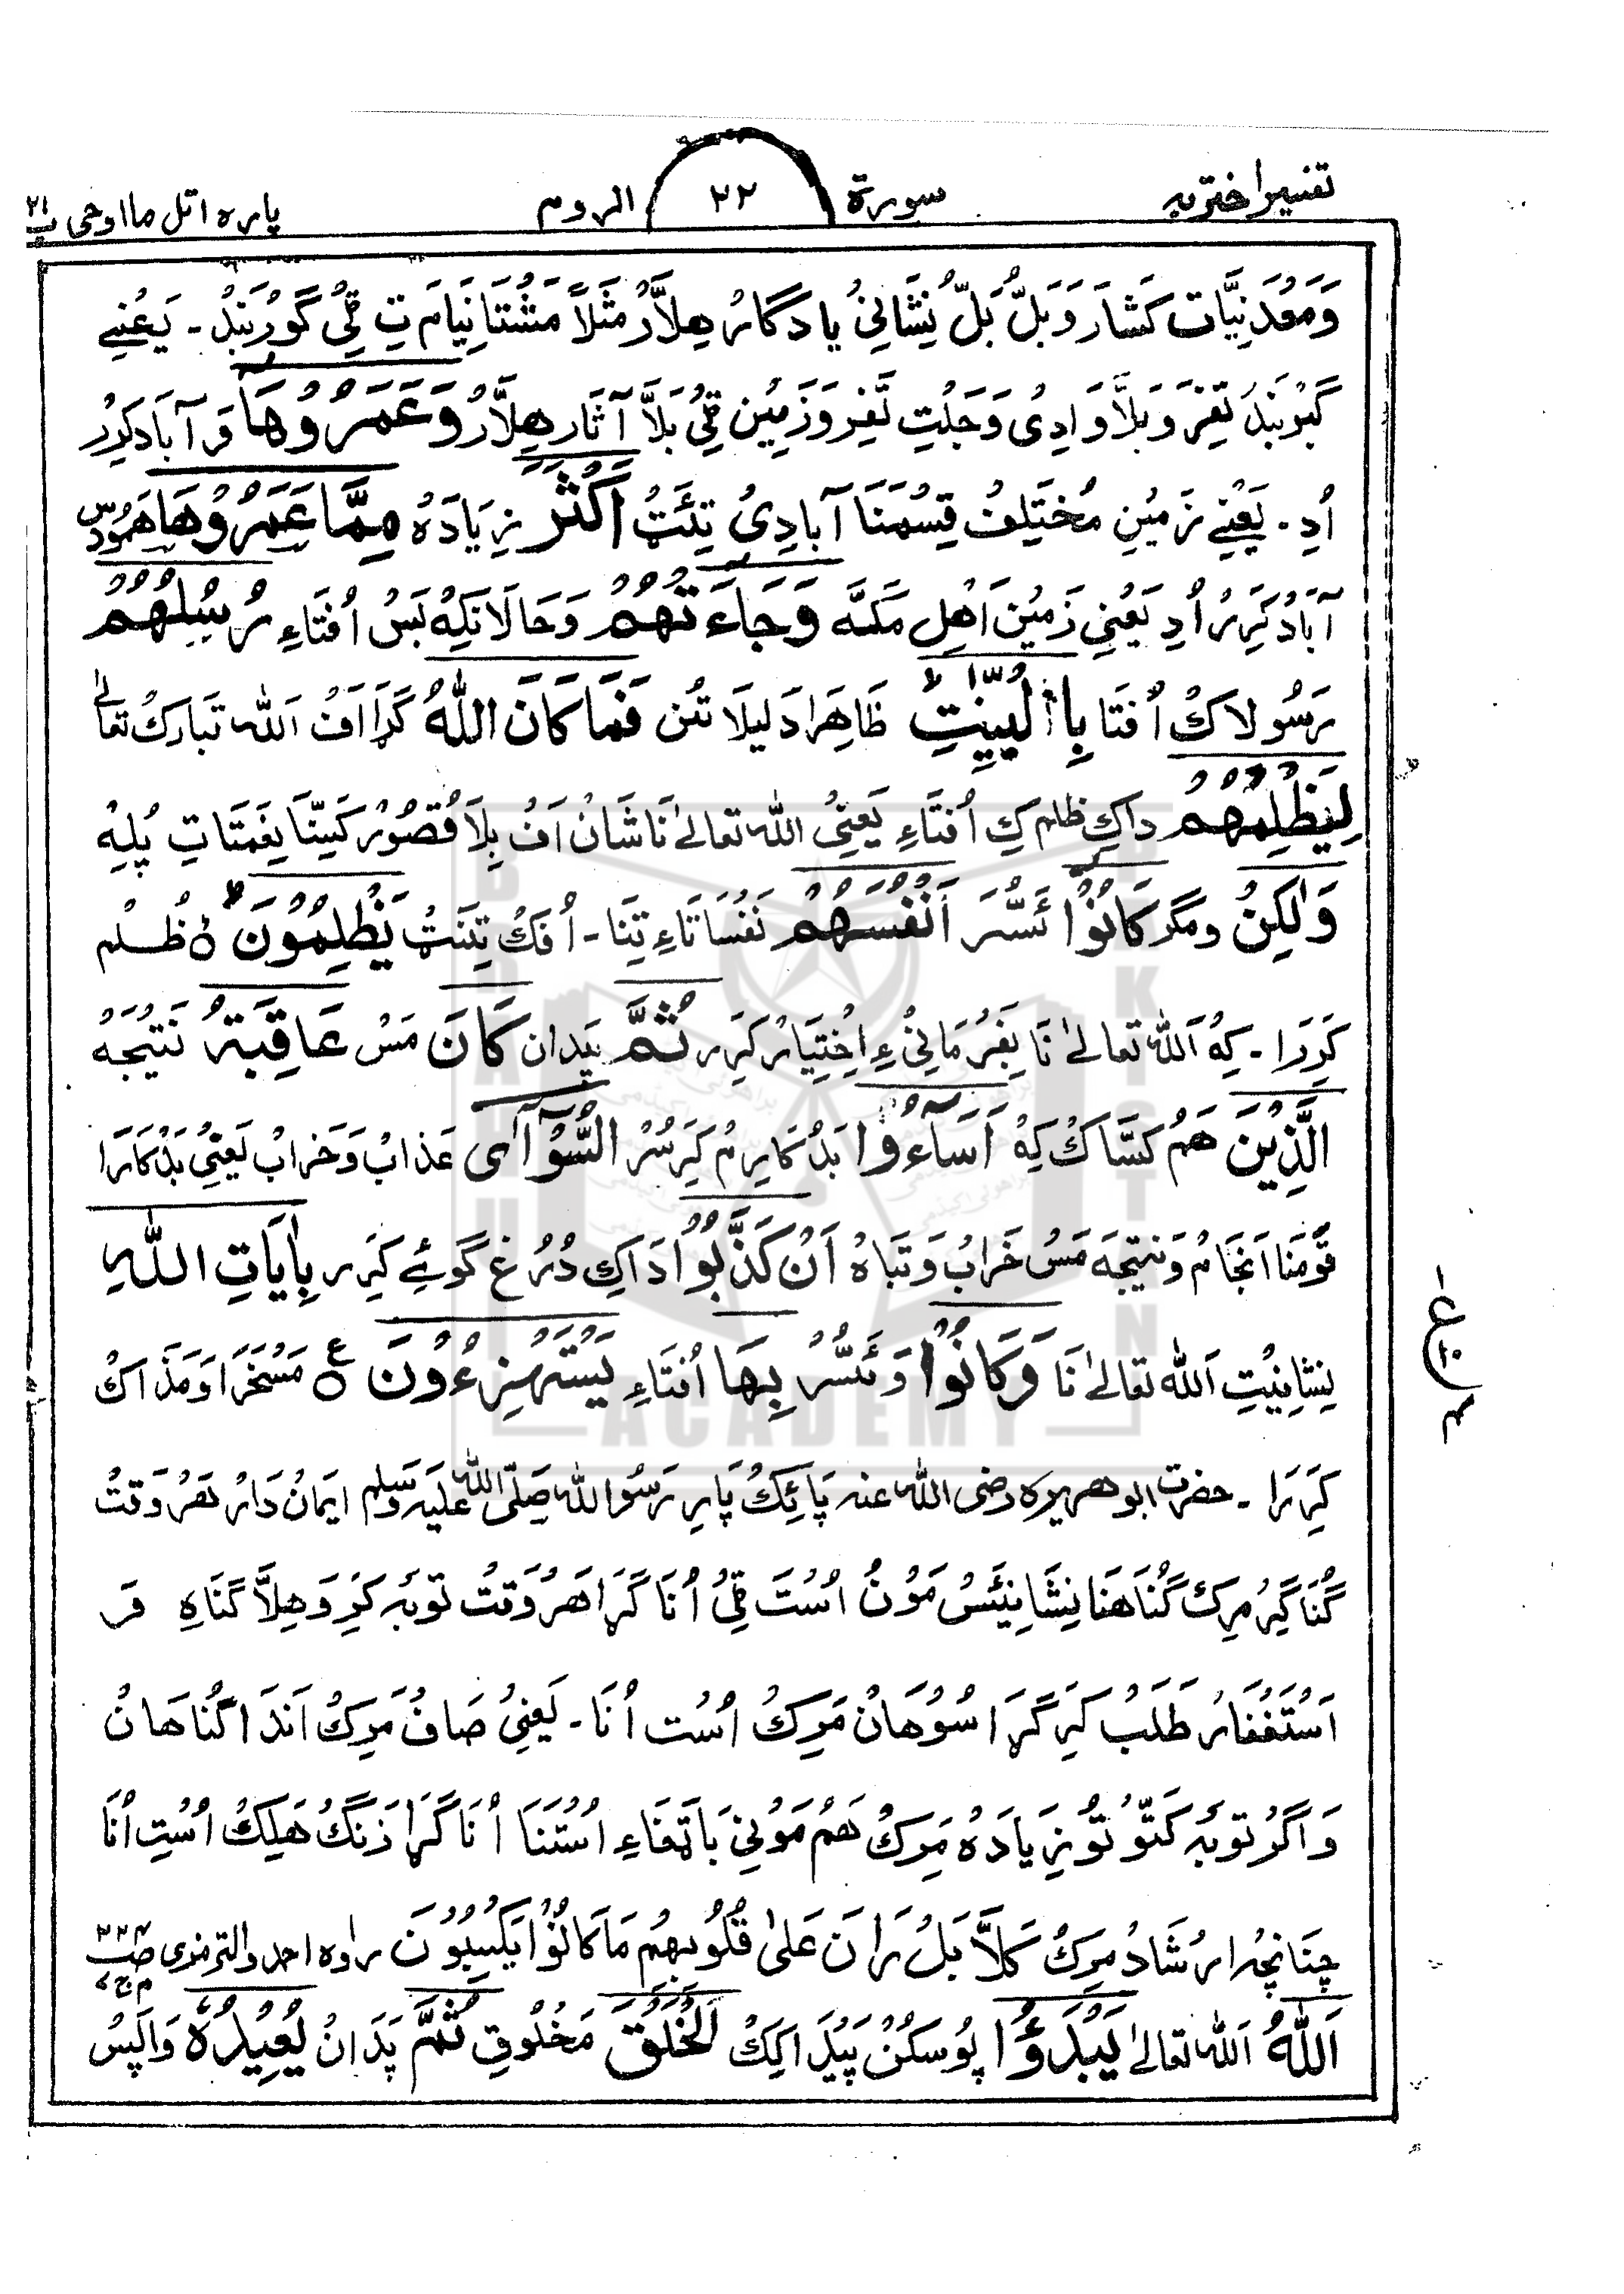 تفسیر اختریہ
سورۃ ٢٢ الروم
پارہ اتل ما اوحی ٢١
وَمَعْدَنِیَّات کَشَارَ وَبَلُّ بَلُّ نِشَانِیْ یادگَارْ ہِلَّارْ مَثَلاً مَشْتَا نِیَامَ تِ ٹِیْ گَوْرْبَنْدْ۔ یَعْنِے
گَبْرْبَنْدْ تَفِرَ وَبَلَّا وَادِیْ وَجَلْتِ تَفِرْ وَزَمِیْنِ ٹِیْ بَلَّا آثَار ہِلَّارْ وَعَمَرُوْهَا وَ آبَادْ کَرِرْ
اُدِ۔ یَعْنِے زَمِیْنِ مُخْتَلِفْ قِسْمَنَا آبَادِیْ تِئَتْ اَكْثَرَ زِیَادَہْ مِمَّا عَمَرُوْهَا ہَمُوْدُسْ
آبَادْ کَرِرْ اُدِ یَعْنِی زَمِیْنِ اَہْلِ مَکَّہ وَجَآءَتْهُمْ وَحَالَانَکِہْ بَسُ اُفْتَاءِ رُسُلُهُمْ
رَسُولَاکْ اُفْتَا بِالْبَیِّنٰتِ ظَاہِرَا دَلِیلَا تَنْ فَمَا كَانَ اللّٰهُ گَڑَا اَفْ اَللہ تَبَارَکْ تَعَالٰے
لِیَظْلِمَهُمْ دَاکِ ظلم کِ اُفْتَاءِ یَعْنِیْ اللہ تعالیٰ نَا شَانْ اَفْ بِلَا قُصُوْرْ کَسِنَّا نِعْمَتَاتِ پُلِہْ
وَلٰكِنْ ومگر كَانُوْا ئَسُّرَ اَنْفُسَهُمْ نَفْسَاتَاءِ تِنَا۔ اُفَکْ تِنَتْ یَظْلِمُوْنَ ہ ظُلْم
کَرِرَا۔ کِہْ اَللہ تعالیٰ نَا نِفَرْمَانِیْ ءِ اِخْتِیَارْ کَرِرَ ثُمَّ پَدان كَانَ مَسْ عَاقِبَةَ نَتِیْجَہْ
الَّذِیْنَ ہَمْ کَسَّاکْ کِہْ اَسَآءُوْا بَدْکَارِیْ کَرِسُرْ السُّوْآٰی عَذَابْ وَخَرَابْ یَعْنِیْ بَدْکَارَا
قَوْمَنَا اَنْجَامْ وَنَتِیْجَہ مَسْ خَرَابْ وَتَبَاہْ اَنْ كَذَّبُوْا دَاکِ دُرُغ گوئے کَرِرَ بِاٰیَاتِ اللّٰهِ
نِشَانِیْتِ اَللہ تعالیٰ نَا وَكَانُوْا وَئَسُّرْ بِهَا اُفْتَاءِ یَسْتَهْزِءُوْنَ ہ ع مَسْخَرَا وَمَذَاکْ
کَرِرَا۔ حضرت ابوھریرہ رضی اللہ عنہ پَائِکْ پَارِ رَسُولُ اللہ صَلَّی اللہُ عَلَیہِ وَسلم اِیمَانْ دَارْ ہَرْ وَقْتْ
گُنَاگِرْ مَرِکْ گُنَاہَنَا نِشَانِیَئسْ مَوْنْ اُسْتَ ٹِیْ اُنَا گَڑَا ہَرْوَقْتْ تَوْبَہ کَرِ وَہِلَّا گُنَاہِ وَ
اَسْتَغْفَارْ طَلَبْ کَرِ گَڑَا سُوْہَانْ مَرِکْ اُسْت اُنَا۔ یَعْنِیْ صَافْ مَرِکْ اَنْدَا گُنَاہَانْ
وَاگَرْ تَوْبَہ کَتَوْ تَوْ زِیَادَہْ مَرِکْ ہَمْ مَوْنِیْ بَاتْغَاءِ اُسْتَنَا اُنَا گَڑَا زَنْگْ ہَلِکْ اُسْتِ اُنَا
چِنَانچِہ اِرْشَادْ مَرِکْ كَلَّا بَلْ رَانَ عَلٰی قُلُوْبِهِمْ مَا كَانُوْا یَكْسِبُوْنَ رواہ احمد والترمذی
اَللّٰهُ اَللہ تعالیٰ یَبْدَؤُا پُوسْکُنْ پَیْدَا کِکْ الْخَلْقَ مَخْلُوْقِ ثُمَّ پَدَانْ یُعِیْدُهٗ وَاپَسْ